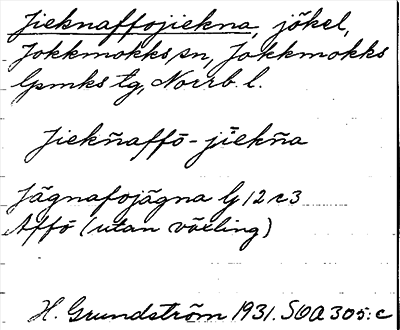 Jieknaffojiekna, jökel,
Jokkmokks sn, Jokkmokks
lpmks tg, Norrb. l.
Jiekñaffō-jīekña
Jägnafojägna G 12 c3
Affō (utan växling)
H. Grundström 1931. SOA 305:c